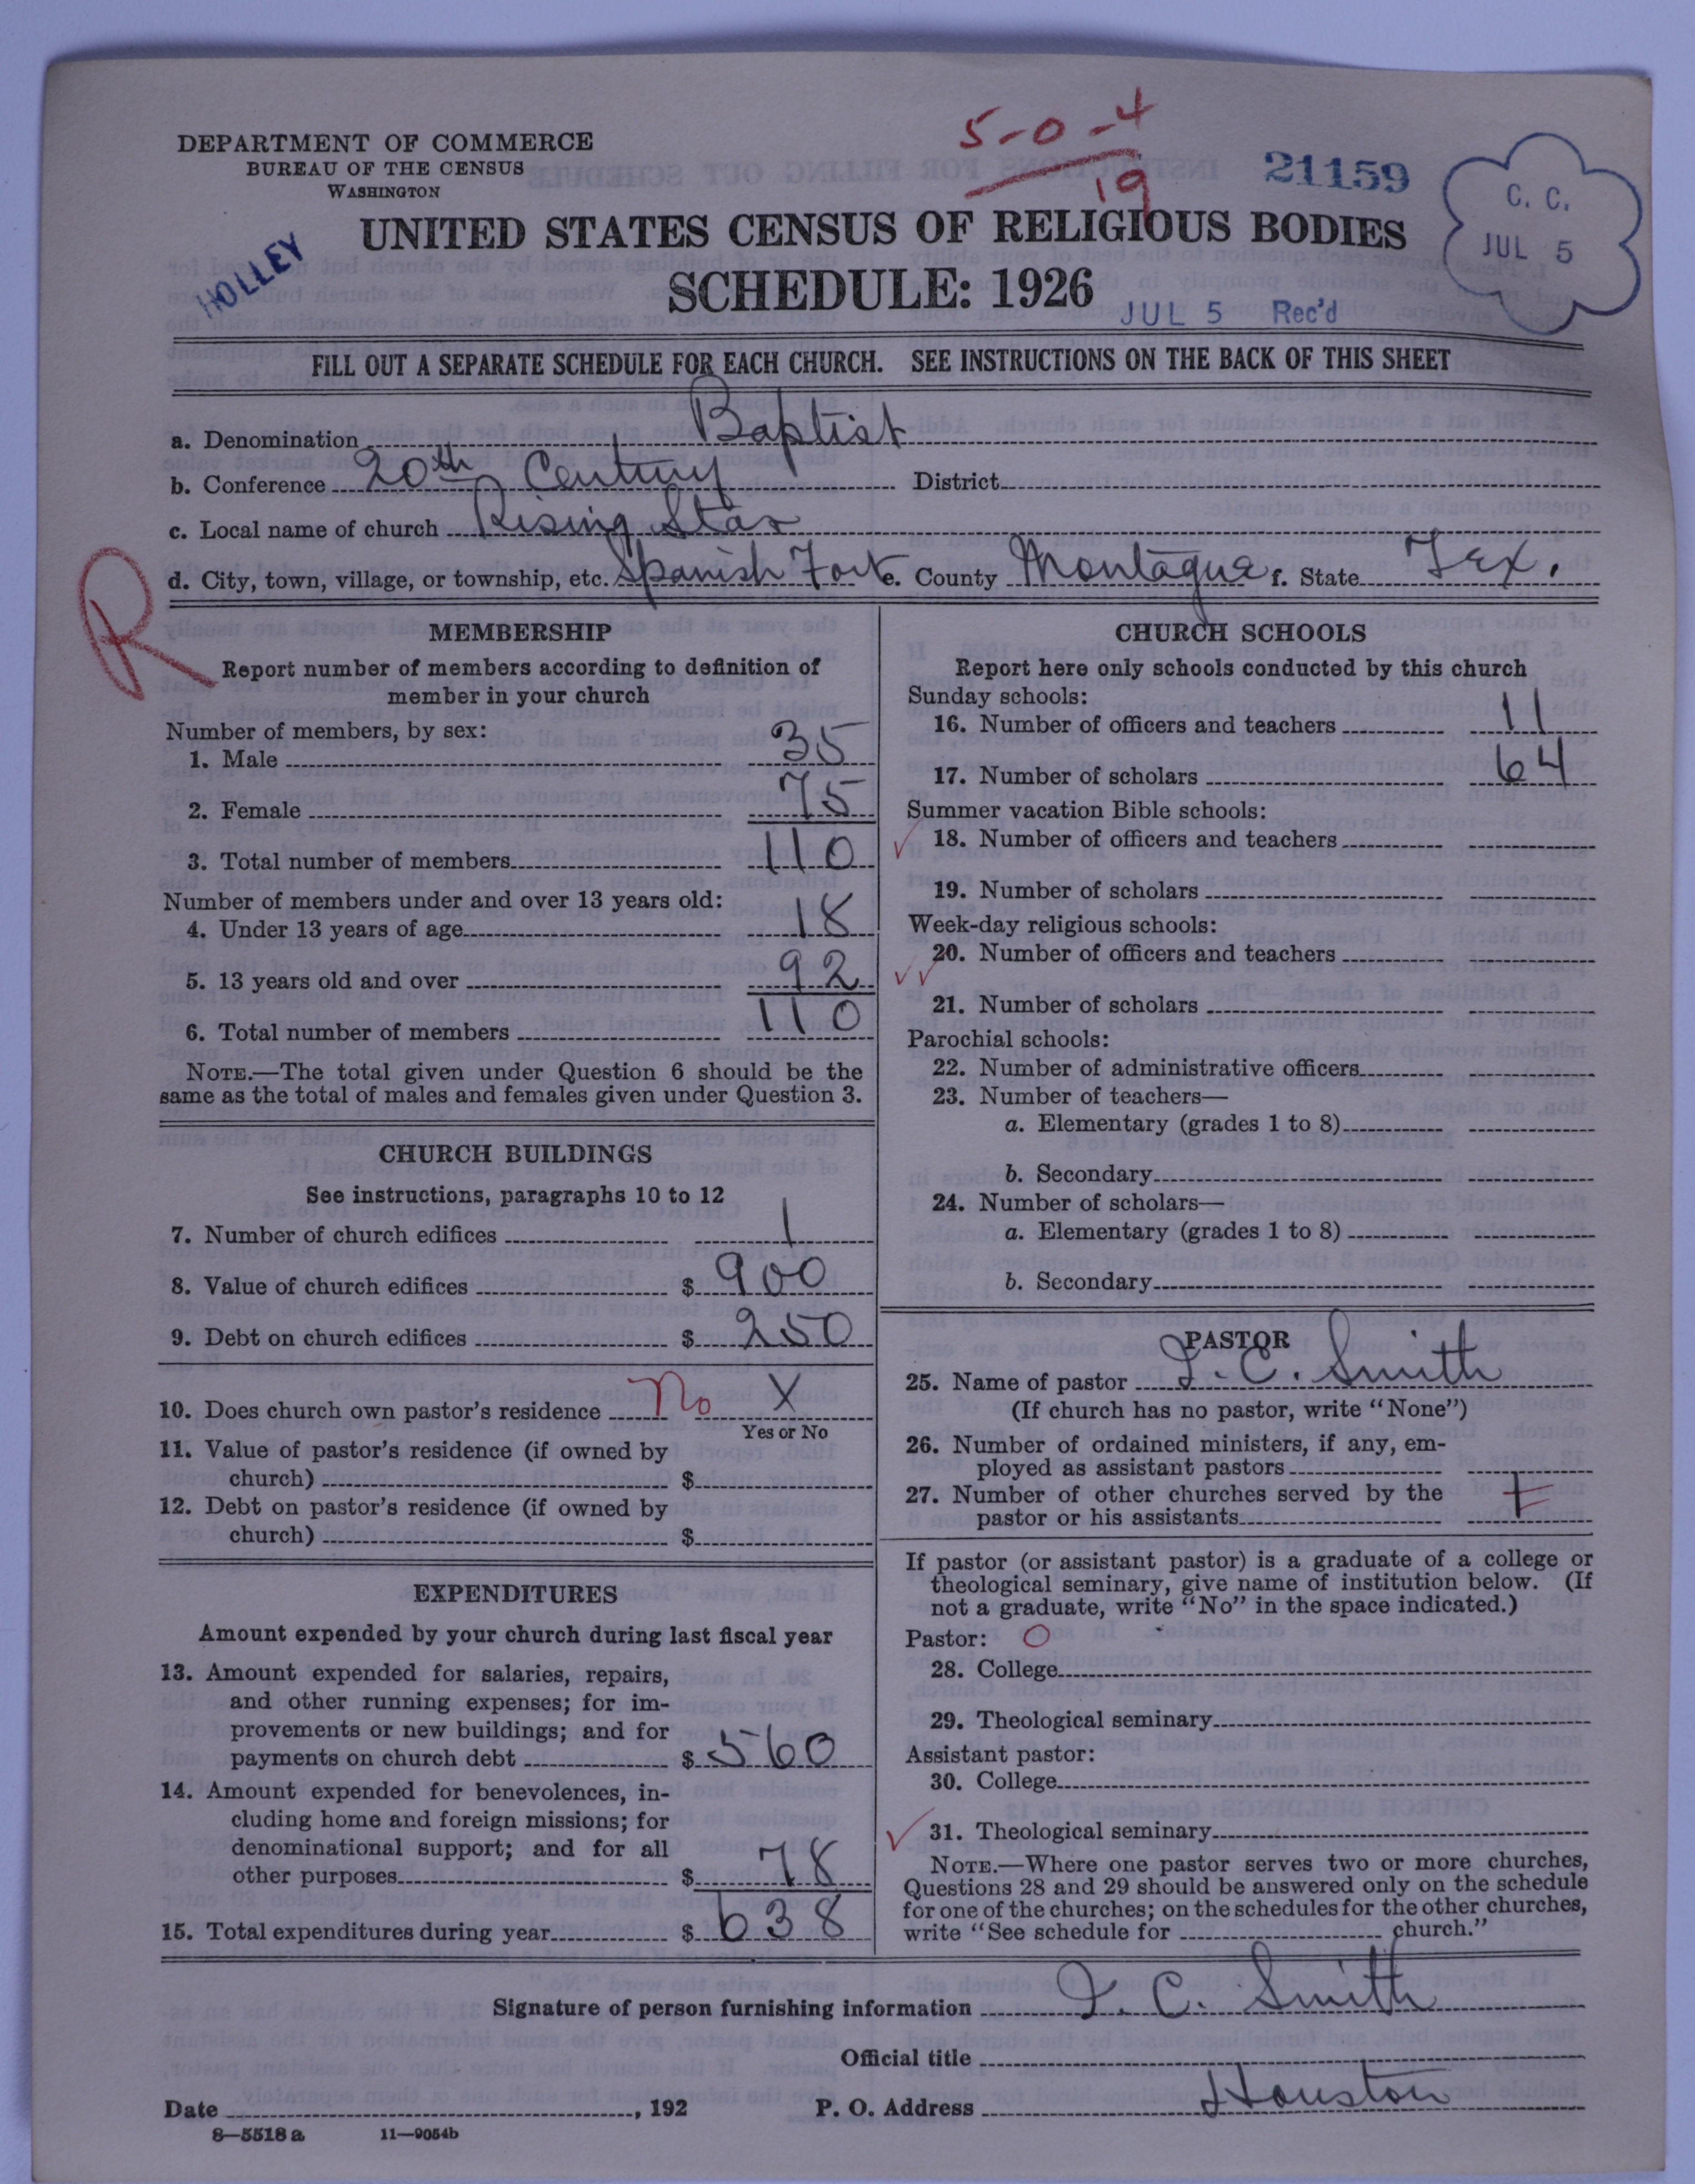 5-0-4
19
21159
C. C.
JUL 5
DEPARTMENT OF COMMERCE
BUREAU OF THE CENSUS
WASHINGTON
HOLLEY
UNITED STATES CENSUS OF RELIGIOUS BODIES
SCHEDULE: 1926
JUL 5 Rec'd
FILL OUT A SEPARATE SCHEDULE FOR EACH CHURCH. SEE INSTRUCTIONS ON THE BACK OF THIS SHEET
a. Denomination Baptist
b. Conference 20th Century District
c. Local name of church Rising Star
d. City, town, village, or township, etc. Spanish Fort e. County Montague f. State Tex.
R
MEMBERSHIP
Report number of members according to definition of
member in your church
Number of members, by sex:
1. Male 35
2. Female 75
3. Total number of members 110
Number of members under and over 13 years old:
4. Under 13 years of age 18
5. 13 years old and over 92
6. Total number of members 110
NOTE.—The total given under Question 6 should be the
same as the total of males and females given under Question 3.
CHURCH BUILDINGS
See instructions, paragraphs 10 to 12
7. Number of church edifices 1
8. Value of church edifices $ 900
9. Debt on church edifices $ 250
10. Does church own pastor's residence No X
Yes or No
11. Value of pastor's residence (if owned by
church) $
12. Debt on pastor's residence (if owned by
church) $
EXPENDITURES
Amount expended by your church during last fiscal year
13. Amount expended for salaries, repairs,
and other running expenses; for im-
provements or new buildings; and for
payments on church debt $ 560
14. Amount expended for benevolences, in-
cluding home and foreign missions; for
denominational support; and for all
other purposes $ 78
15. Total expenditures during year $ 638
CHURCH SCHOOLS
Report here only schools conducted by this church
Sunday schools:
16. Number of officers and teachers 11
17. Number of scholars 64
Summer vacation Bible schools:
18. Number of officers and teachers
19. Number of scholars
Week-day religious schools:
20. Number of officers and teachers
21. Number of scholars
Parochial schools:
22. Number of administrative officers
23. Number of teachers—
a. Elementary (grades 1 to 8)
b. Secondary
24. Number of scholars—
a. Elementary (grades 1 to 8)
b. Secondary
PASTOR
25. Name of pastor I. C. Smith
(If church has no pastor, write "None")
26. Number of ordained ministers, if any, em-
ployed as assistant pastors
27. Number of other churches served by the
pastor or his assistants 1
If pastor (or assistant pastor) is a graduate of a college or
theological seminary, give name of institution below. (If
not a graduate, write "No" in the space indicated.)
Pastor: O
28. College
29. Theological seminary
Assistant pastor:
30. College
31. Theological seminary
NOTE.—Where one pastor serves two or more churches,
Questions 28 and 29 should be answered only on the schedule
for one of the churches; on the schedules for the other churches,
write "See schedule for church."
Signature of person furnishing information I. C. Smith
Official title
Date , 192 P. O. Address Houston
8—5518 a 11—9054b